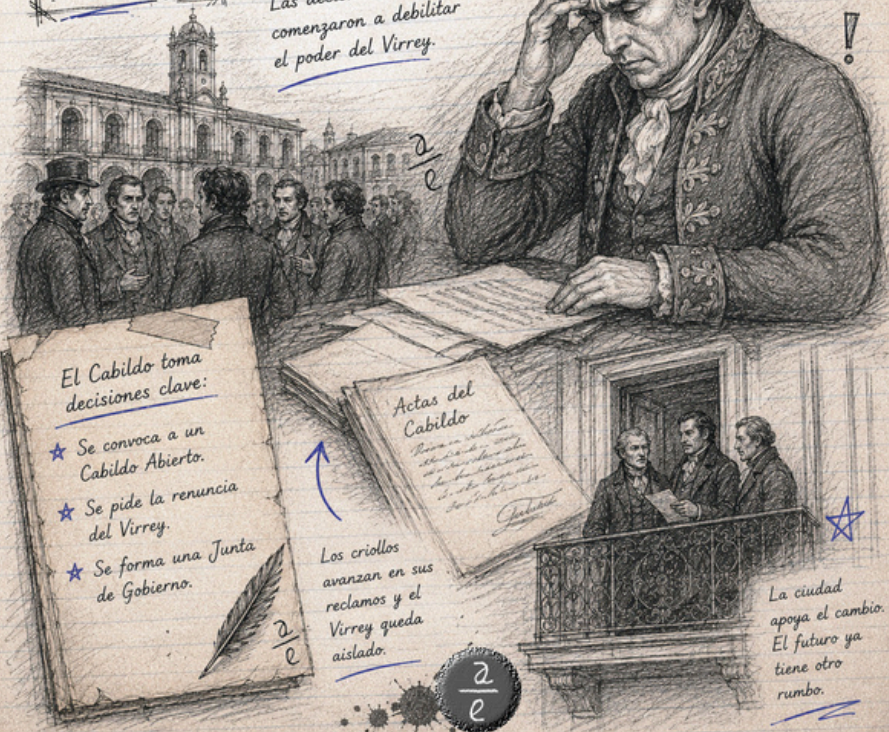 Las
comenzaron a debilitar
el poder del Virrey.
!
a
e
El Cabildo toma
decisiones clave:
Se convoca a un
Cabildo Abierto.
Se pide la renuncia
del Virrey.
Se forma una Junta
de Gobierno.
a
e
Actas del
Cabildo
Los criollos
avanzan en sus
reclamos y el
Virrey queda
aislado.
a
e
La ciudad
apoya el cambio.
El futuro ya
tiene otro
rumbo.